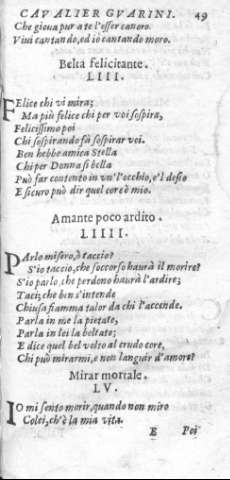 CAVALIER GVARINI. 49
Che gioua pur a te l'esser canoro.
Viui cantando, ed io cantando moro.
Belta felicitante.
LIII.
Felice chi vi mira;
Ma più felice chi per voi sospira,
Felicissimo poi
Chi sospirando fà sospirar voi.
Ben hebbe amica Stella
Chi per Donna sì bella
Può far contento in vn'l'occhio, e'l desio
E sicuro può dir quel core è mio.
Amante poco ardito.
LIIII.
Parlo misero, ò taccio?
S'io taccio, che soccorso haurà il morire?
S'io parlo, che perdono haurà l'ardire;
Taci; che ben s'intende
Chiusa fiamma talor da chi l'accende.
Parla in me la pietate,
Parla in lei la beltate;
E dice quel bel volto al crudo core,
Chi può mirarmi, e non languir d'amore?
Mirar mortale.
LV.
Io mi sento morir, quando non miro
Colei, ch'è la mia vita.
E Poi